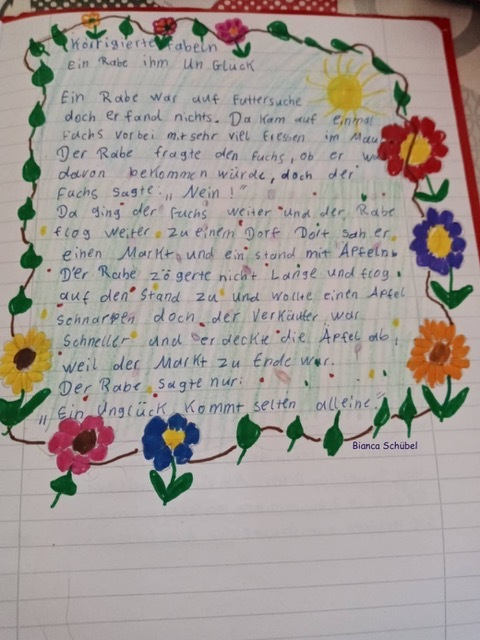 Korrigierte Fabeln
Ein Rabe ihm Un Glück
Ein Rabe war auf Futtersuche
doch er fand nichts. Da kam auf einmal
Fuchs vorbei mit sehr viel Fressen im Maul.
Der Rabe fragte den Fuchs, ob er was
davon bekommen würde, doch der
Fuchs sagte: „Nein!"
Da ging der Fuchs weiter und der Rabe
flog weiter zu einem Dorf Dort sah er
einen Markt und ein stand mit Äpfeln.
Der Rabe zögerte nicht Lange und flog
auf den Stand zu und wollte einen Apfel
schnappen doch der Verkäufer war
schneller und er deckte die Äpfel ab,
weil der Markt zu Ende war.
Der Rabe sagte nur:
„Ein Unglück kommt selten alleine."
Bianca Schübel